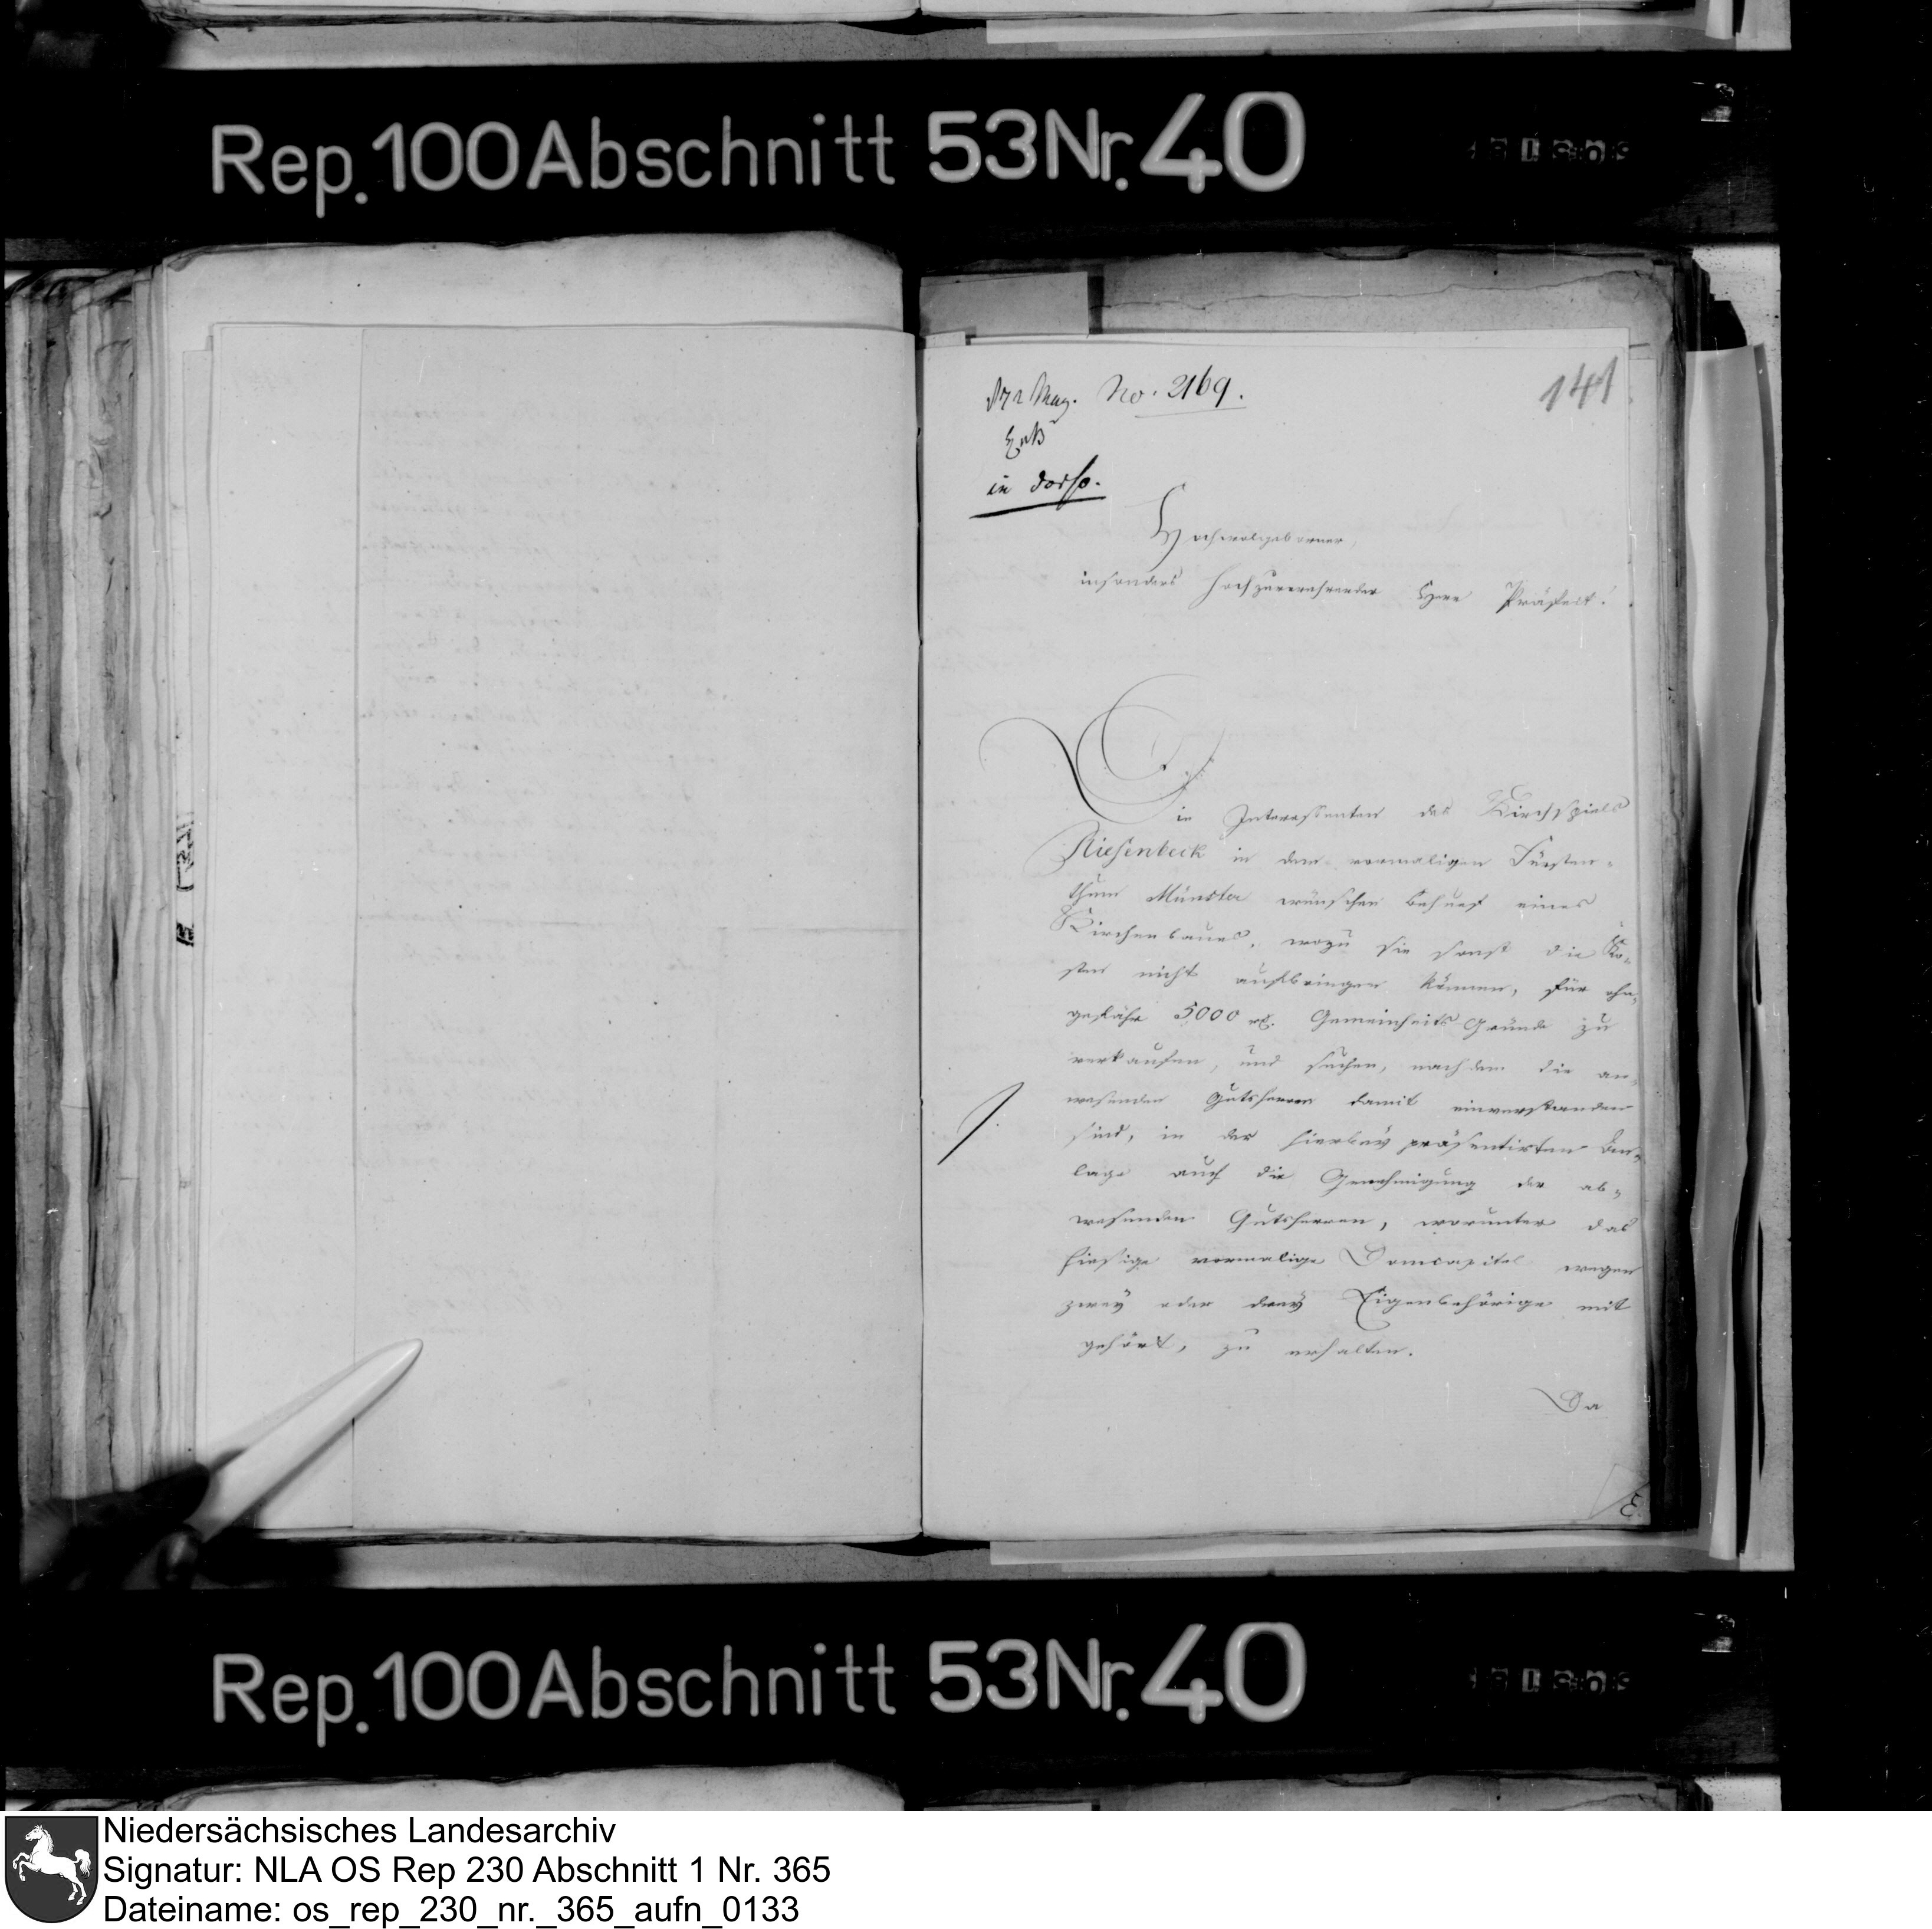 Rep. 100 Abschnitt 53 Nr. 40
No. 2169.
141
in dorso.
Hochwolgeborner,
insonders hochzuverehrender Herr Präfect!
Die Interessenten des Kirchspiels
Riesenbeck in dem vormaligen Fürsten-
thum Münster wünschen behuef eines
Kirchenbaues, wozu sie sonst die Ko-
sten nicht aufbringen können, für ohn-
gefähr 5000 rt. Gemeinheits Gründe zu
verkaufen, und suchen, nachdem die an-
wesenden Gutsherren damit einverstanden
sind, in der hierbey präsentirten
lage auch die Genehmigung der ab-
wesenden Gutsherren, worunter das
hiesige vormalige Domcapitel wegen
zwey oder drey Eigenbehörige mit
gehört, zu erhalten.
Da
Rep. 100 Abschnitt 53 Nr. 40
Niedersächsisches Landesarchiv
Signatur: NLA OS Rep 230 Abschnitt 1 Nr. 365
Dateiname: os_rep_230_nr._365_aufn_0133